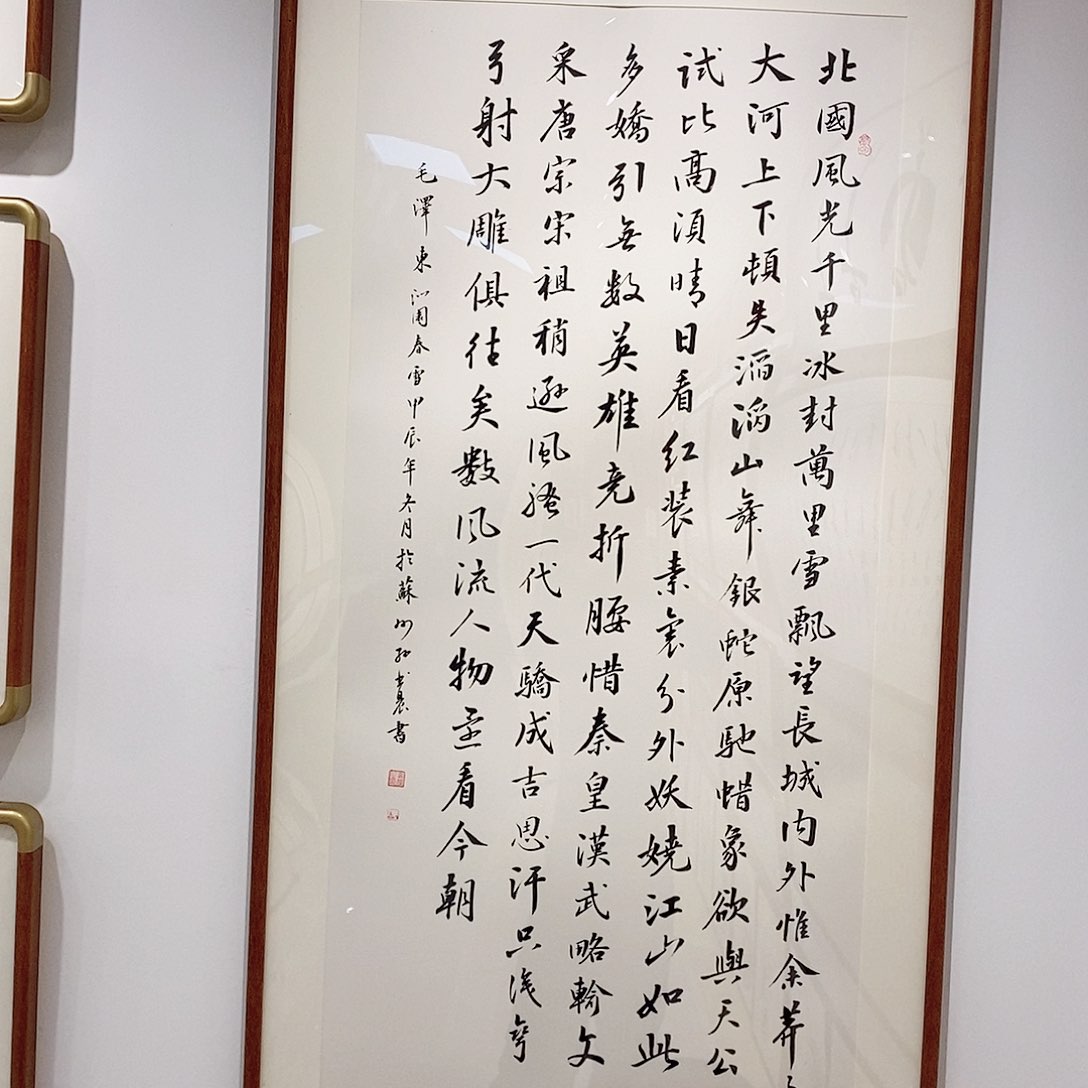 北國風光千里冰封萬里雪飄望長城内外惟余莽
大河上下頓失滔滔山舞銀蛇原馳蜡象欲與天公
試比高須晴日看红装素裹分外妖嬈江山如此
多嬌引無数英雄竞折腰惜秦皇漢武略輸文
采唐宗宋祖稍遜風骚一代天驕成吉思汗只識彎
弓射大雕俱往矣數风流人物還看今朝
毛澤東沁園春雪甲辰年冬月於蘇州